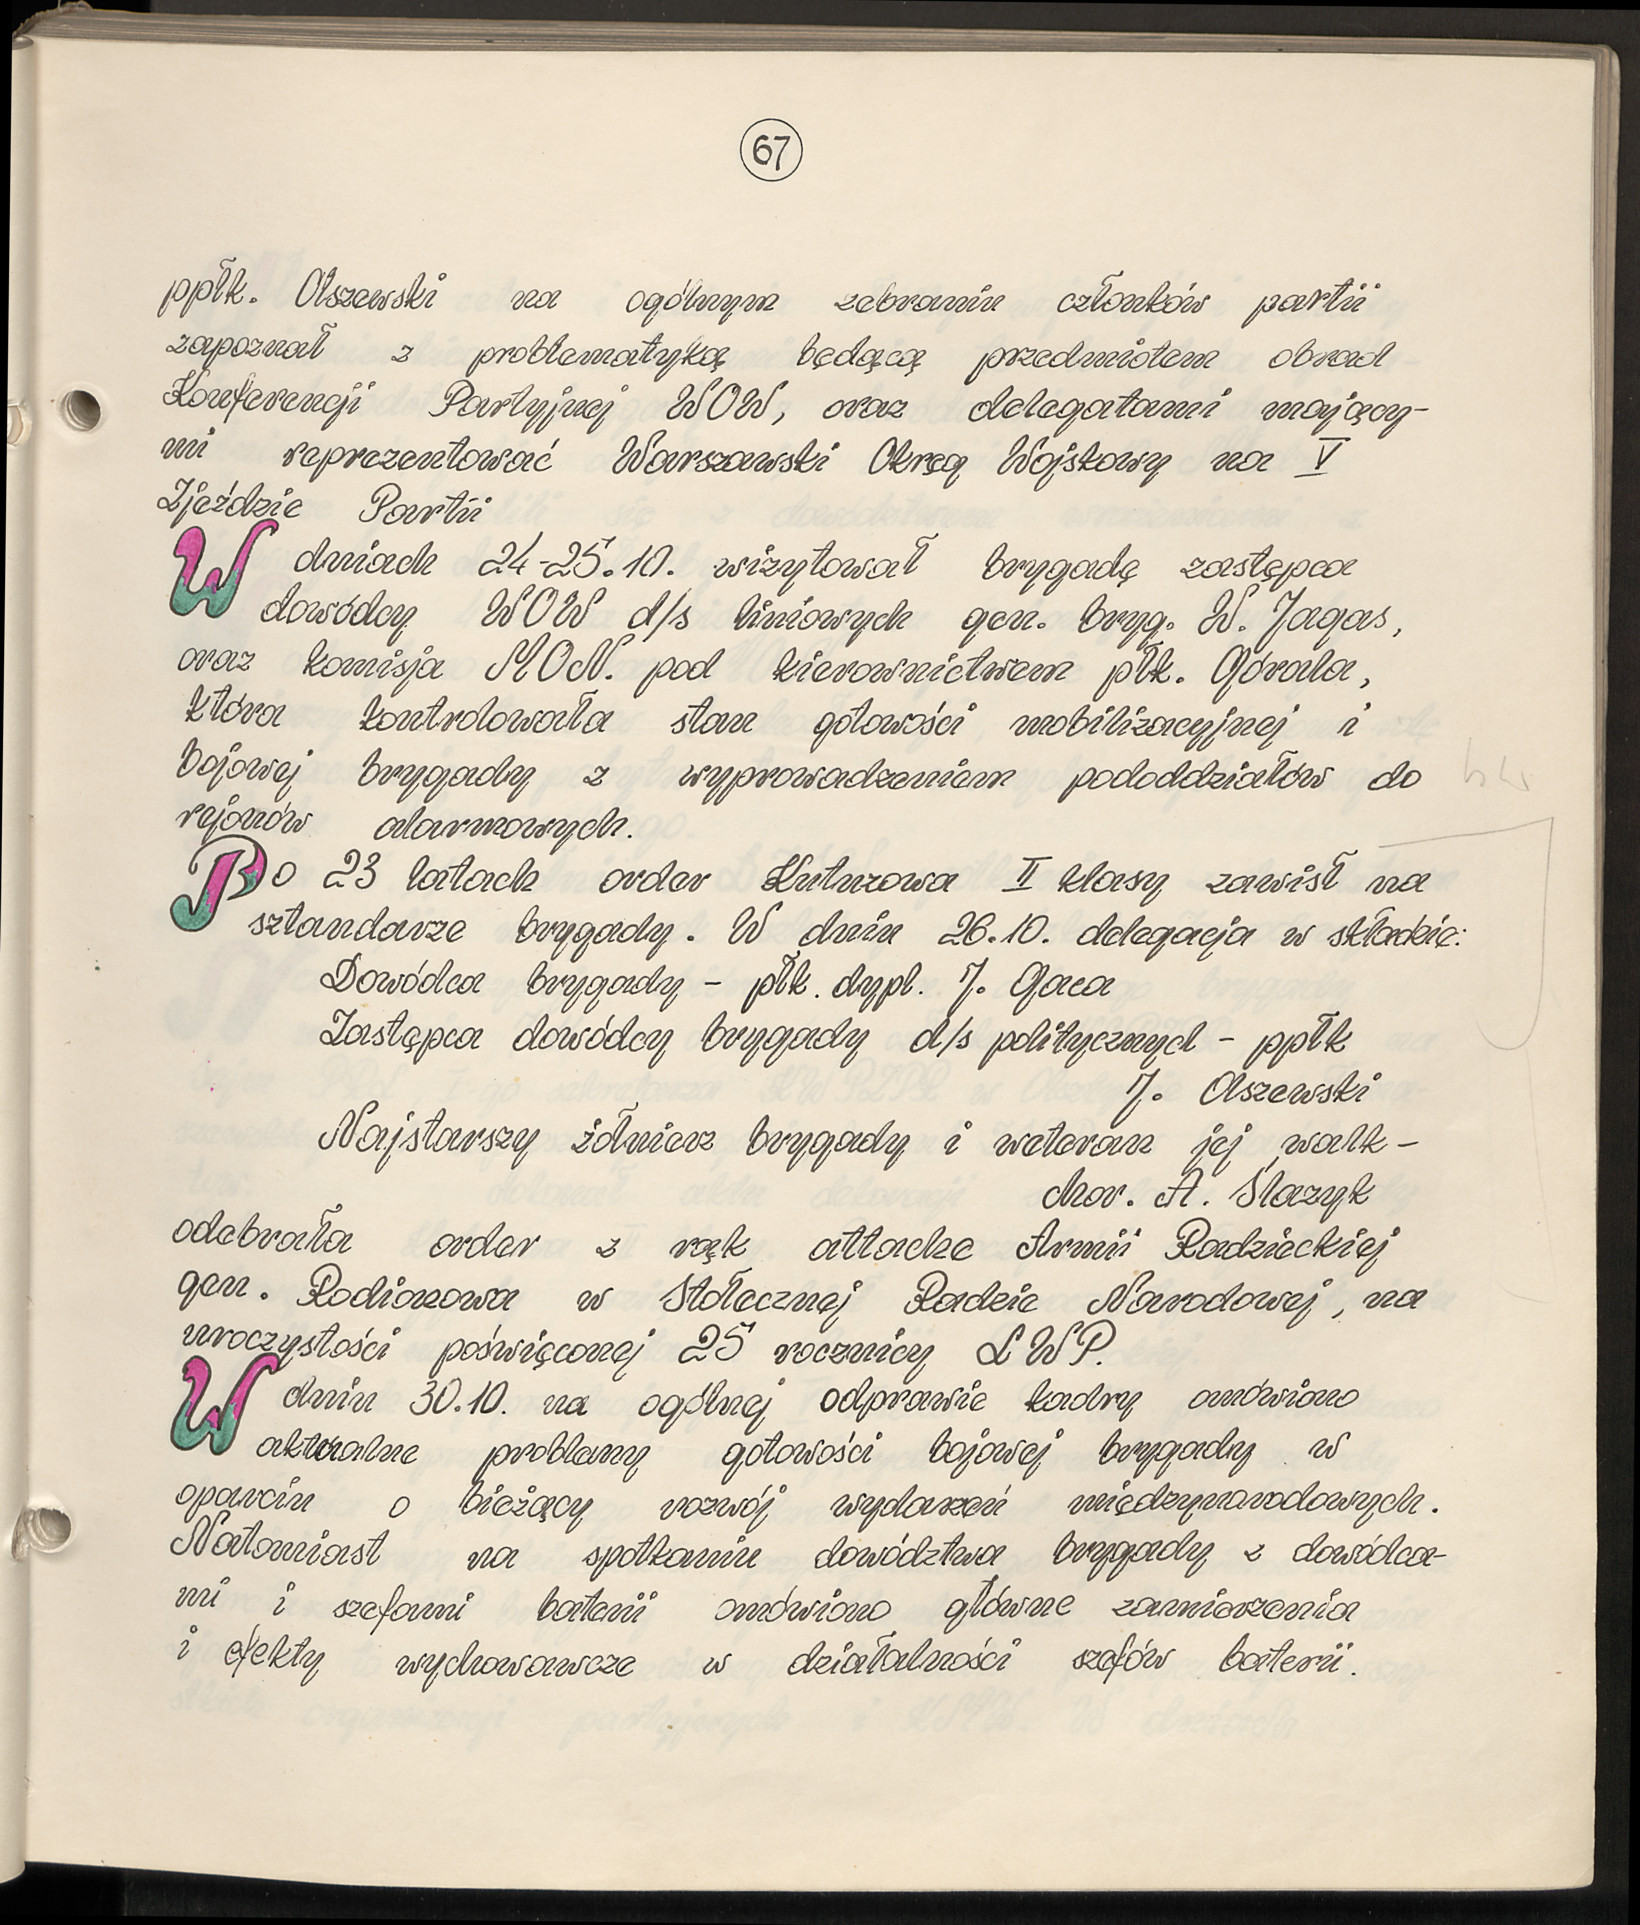 67
ppłk. Olszewski na ogólnym zebraniu członków partii
zapoznał z problematyką będącą przedmiotem obrad
Konferencji Partyjnej WOW, oraz delegatami mający-
mi reprezentować Warszawski Okręg Wojskowy na V
Zjeździe Partii
W dniach 24-25.10. wizytował brygadę zastępca
dowódcy WOW d/s liniowych gen. bryg. W. Jagas,
oraz komisja MON. pod kierownictwem płk. Górala,
która kontrolowała stan gotowości mobilizacyjnej i
bojowej brygady z wyprowadzeniem pododdziałów do
rejonów alarmowych.
Po 23 latach order Kutuzowa II klasy zawisł na
sztandarze brygady. W dniu 26.10. delegacja w składzie:
Dowódca brygady - płk. dypl. J. Gaca
Zastępca dowódcy brygady d/s politycznych - ppłk
J. Olszewski
Najstarszy żołnierz brygady i weteran jej walk -
chor. A. Ślazyk
odebrała order z rąk attache Armii Radzieckiej
gen. Rodionowa w Stołecznej Radzie Narodowej, na
uroczystości poświęconej 25 rocznicy LWP.
W dniu 30.10. na ogólnej odprawie kadry omówiono
aktualne problemy gotowości bojowej brygady w
oparciu o bieżący rozwój wydarzeń międzynarodowych.
Natomiast na spotkaniu dowództwa brygady z dowódca-
mi i szefami baterii omówiono główne zamierzenia
i efekty wychowawcze w działalności szefów baterii.